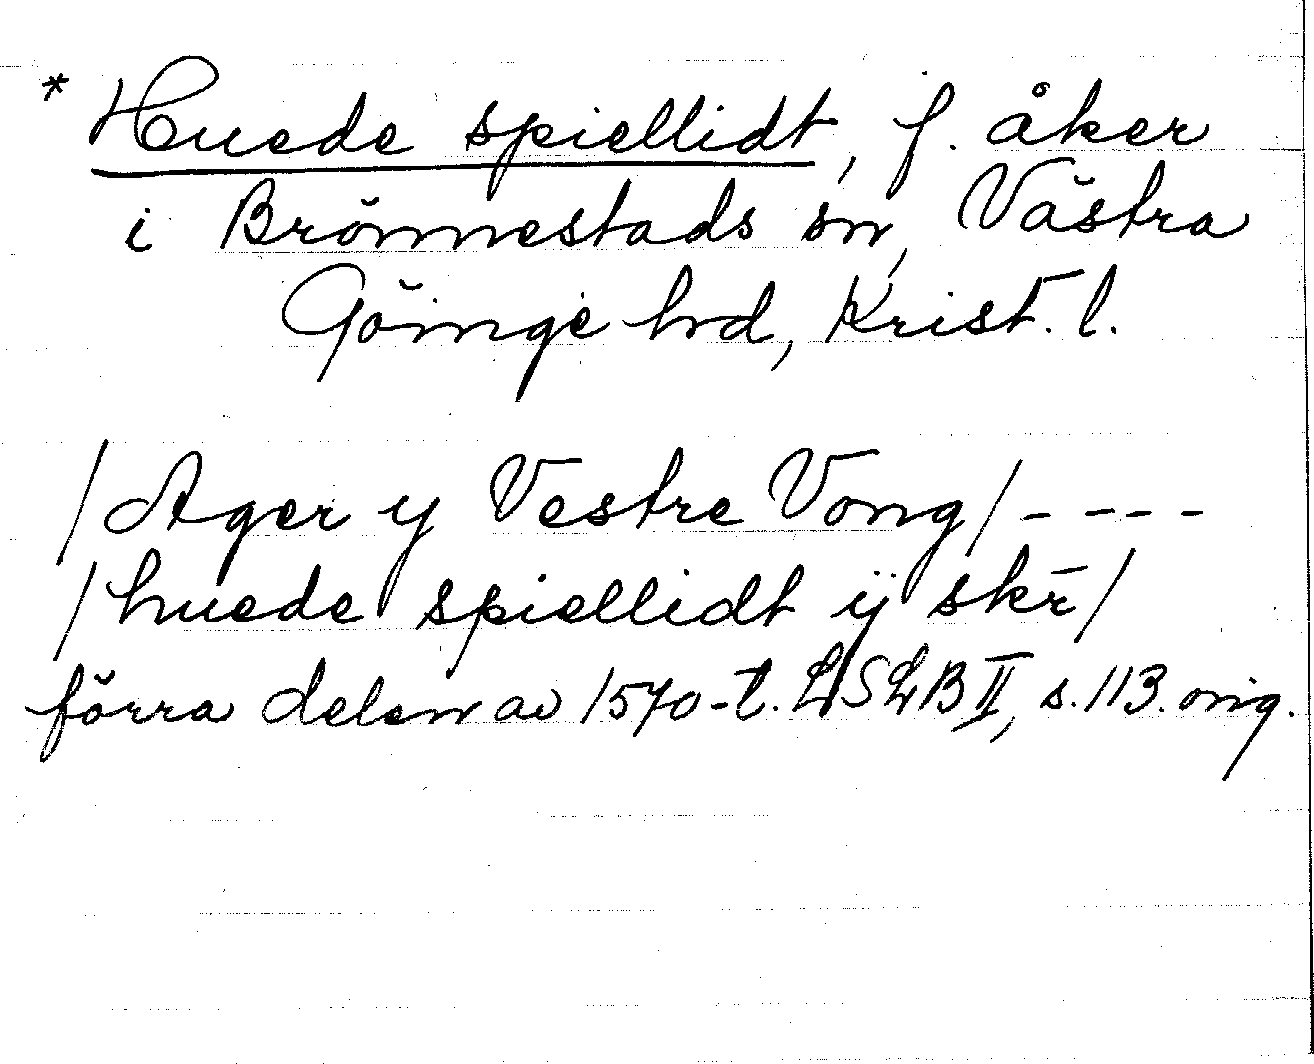 * Huede spiellidt, f. åker
i Brönnestads sn, Västra
Göinge hd, Krist. l.
/Ager y Vestre Vong/ - - - -
/huede spiellidt ij skr̄/
förra delen av 1570-t. LSLB II, s. 113. orig.